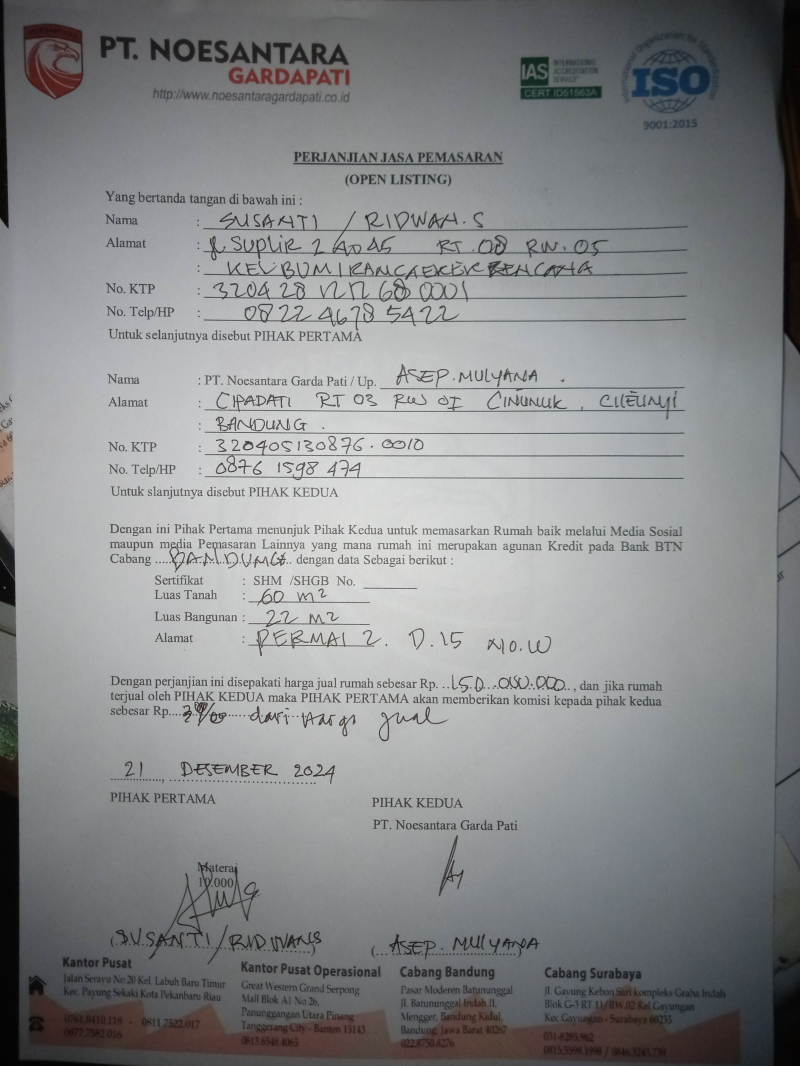 PT. NOESANTARA
GARDAPATI
http://www.noesantaragardapati.co.id
IAS INTERNATIONAL ACCREDITATION SERVICE
CERT ID61563A
International Organization for Standardization
ISO
9001:2015
PERJANJIAN JASA PEMASARAN
(OPEN LISTING)
Yang bertanda tangan di bawah ini :
Nama : SUSANTI / RIDWAN.S
Alamat : Jl Suplir 2 No 45 RT.08 RW.05
: KEL BUMI RANCAEKEK KENCANA
No. KTP : 320428 1212 68 0001
No. Telp/HP : 0822 4678 5422
Untuk selanjutnya disebut PIHAK PERTAMA
Nama : PT. Noesantara Garda Pati / Up. ASEP. MULYANA .
Alamat : CIPADATI RT 03 RW 01 CINUNUK , CILEUNYI
: BANDUNG .
No. KTP : 320405130876.0010
No. Telp/HP : 0876 1598 474
Untuk slanjutnya disebut PIHAK KEDUA
Dengan ini Pihak Pertama menunjuk Pihak Kedua untuk memasarkan Rumah baik melalui Media Sosial
maupun media Pemasaran Lainnya yang mana rumah ini merupakan agunan Kredit pada Bank BTN
Cabang .....BANDUNG.. dengan data Sebagai berikut :
Sertifikat : SHM /SHGB No.
Luas Tanah : 60 m2
Luas Bangunan : 22 M2
Alamat : PERMAI 2. D.15 No.W
Dengan perjanjian ini disepakati harga jual rumah sebesar Rp. ..150.000.000.., dan jika rumah
terjual oleh PIHAK KEDUA maka PIHAK PERTAMA akan memberikan komisi kepada pihak kedua
sebesar Rp....3%...... dari harga jual
21 DESEMBER 2024
PIHAK PERTAMA
PIHAK KEDUA
PT. Noesantara Garda Pati
Materai
10.000
(SUSANTI/RIDWANS)
( ASEP. MULYANA
Kantor Pusat
Jalan Serayu No.20 Kel. Labuh Baru Timur
Kec. Payung Sekaki Kota Pekanbaru Riau
0761.8410.118 - 0811.7522.017
0877.7582.016
Kantor Pusat Operasional
Great Western Grand Serpong
Mall Blok A1 No 2b,
Panunggangan Utara Pinang
Tanggerang City - Banten 15143
0813.6548.4065
Cabang Bandung
Pasar Moderen Batununggal
Jl. Batununggal Indah II,
Mengger, Bandung Kidul,
Bandung, Jawa Barat 40267
022.8750.8276
Cabang Surabaya
Jl. Gayung Kebon Sari kompleks Graha Indah
Blok G-3 RT 11/RW.02 Kel Gayungan
Kec Gayungan - Surabaya 60235
031-8285.962
0815.5399.1998 / 0846.3243.739